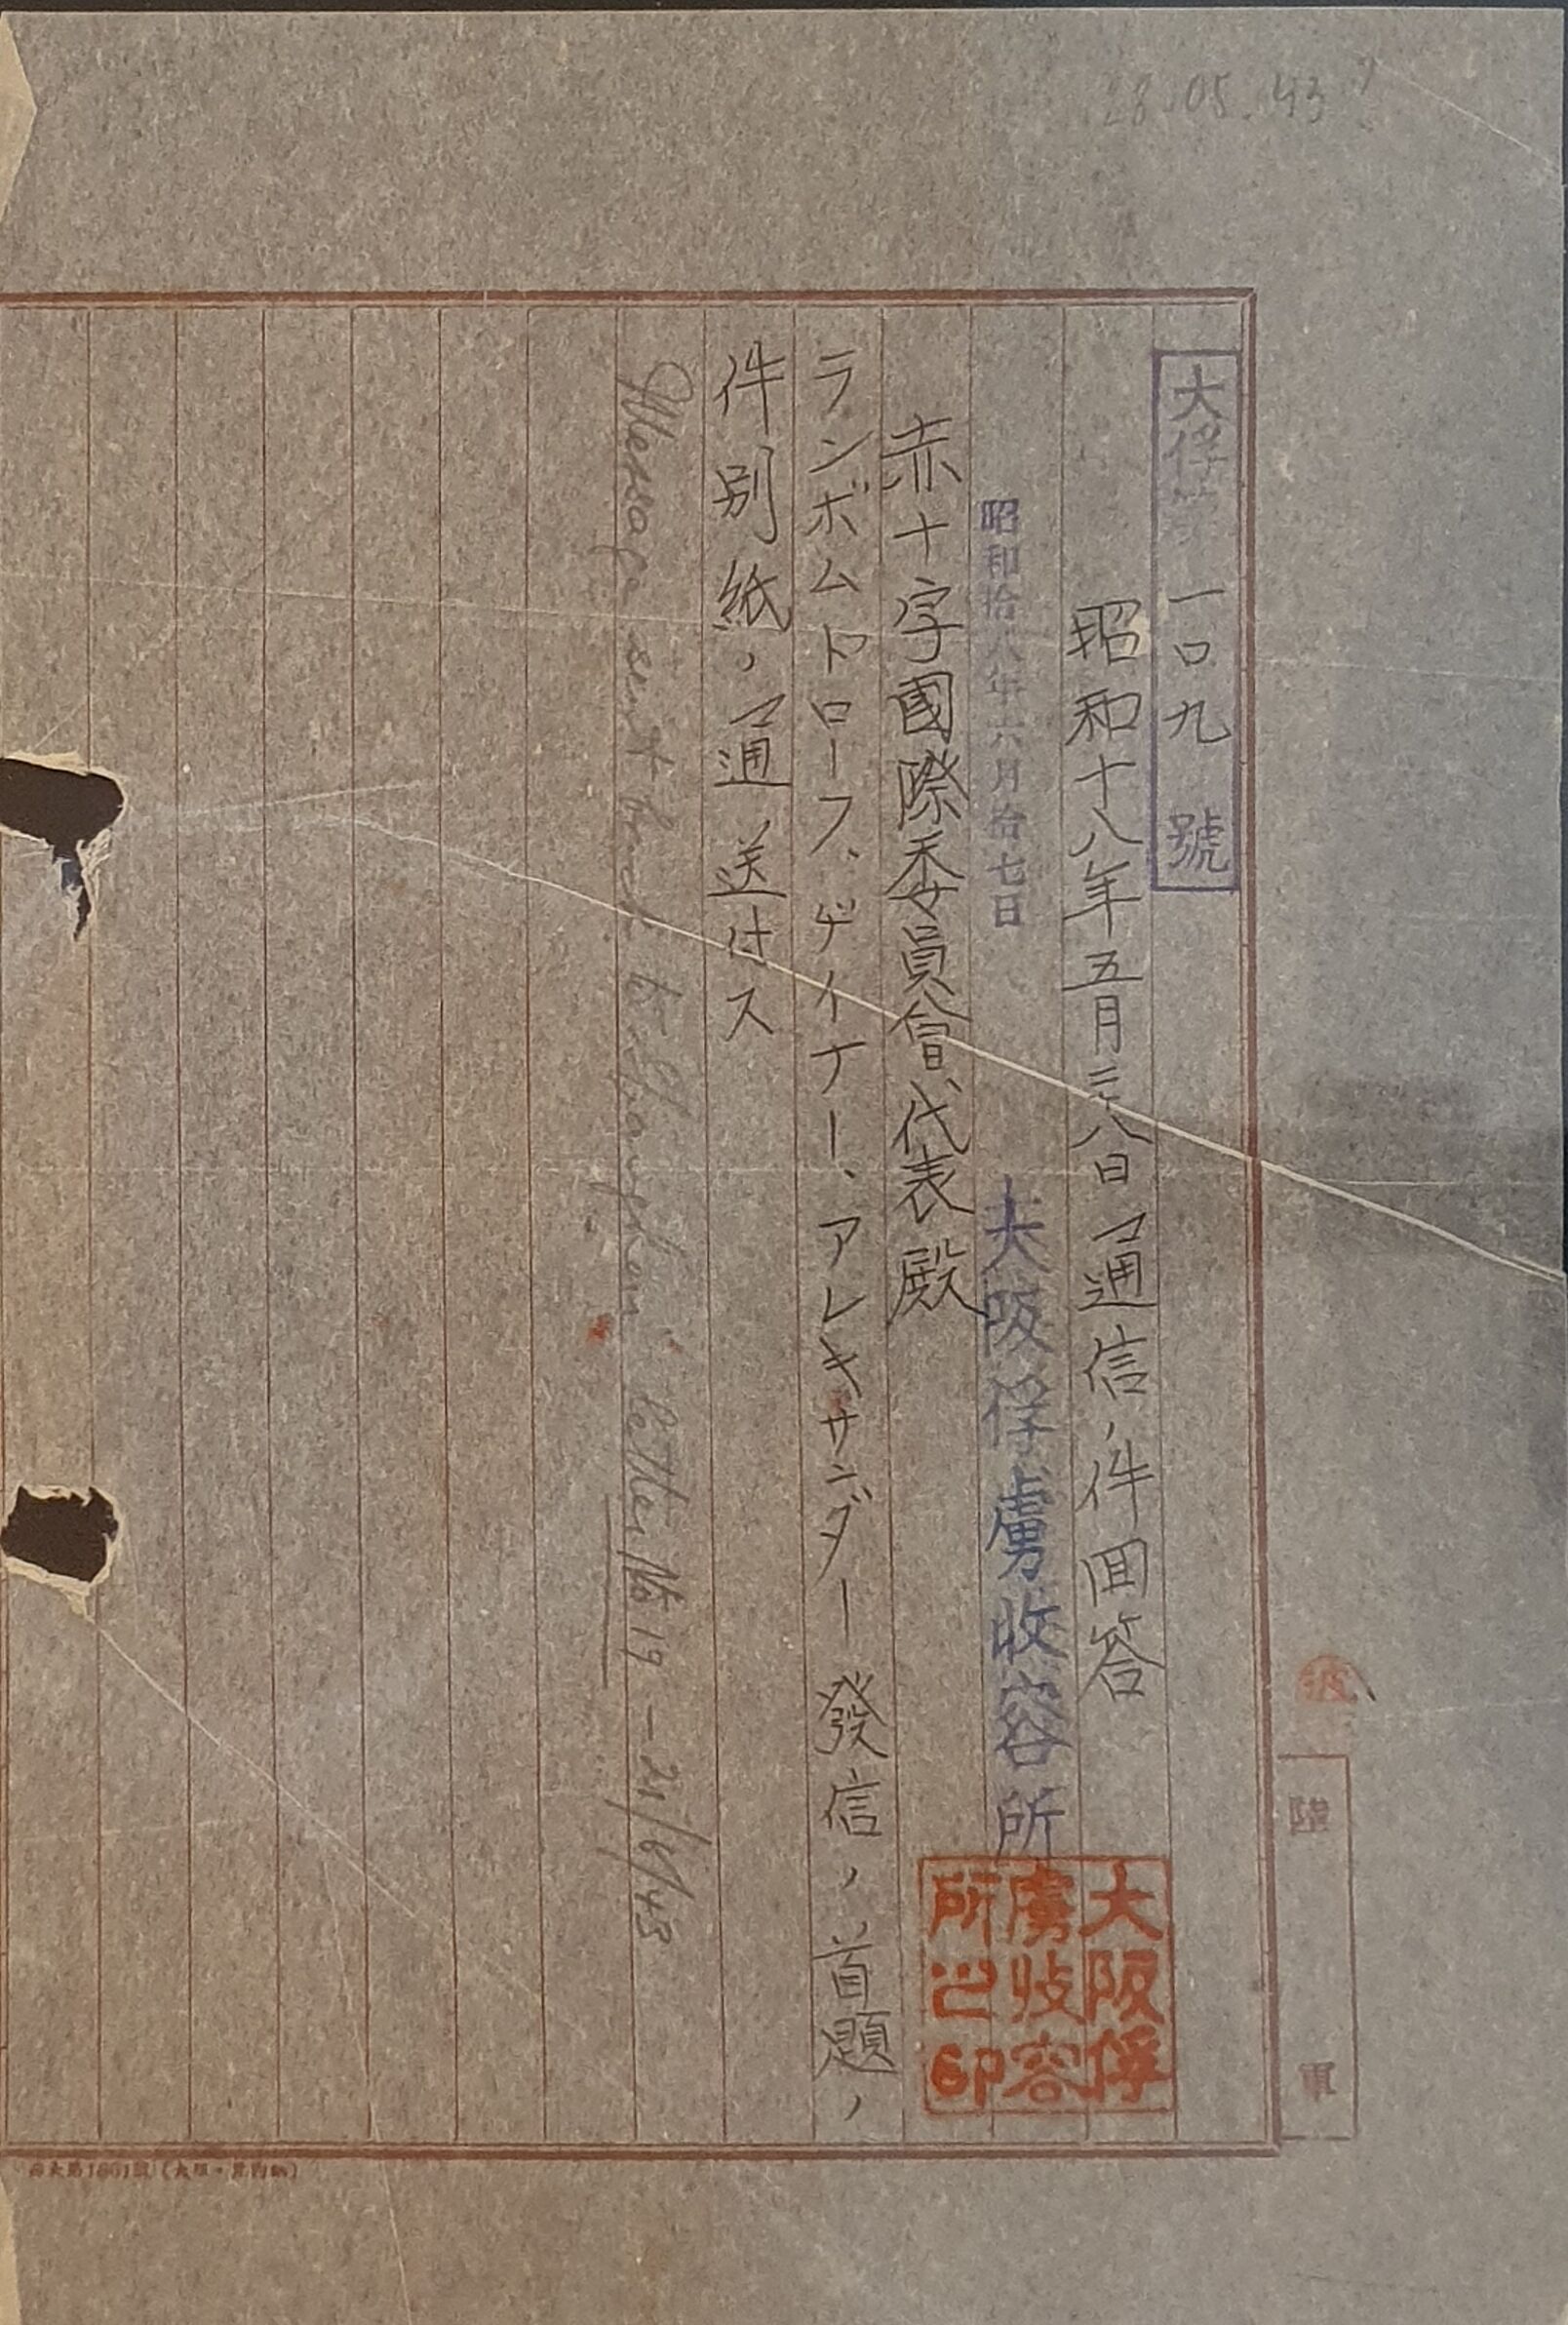 28.05.43
大俘第一〇九號
昭和十八年五月二十八日通信ノ件回答
昭和拾八年六月拾七日
大阪俘虜收容所
大阪俘虜收容所之印
赤十字國際委員會代表殿
ランボムドローフ、ディナー、アレキサンダー發信ノ首題ノ
件別紙ノ通送付ス
Message sent back to Shanghai Letter No 19 – 21/6/43
陸軍